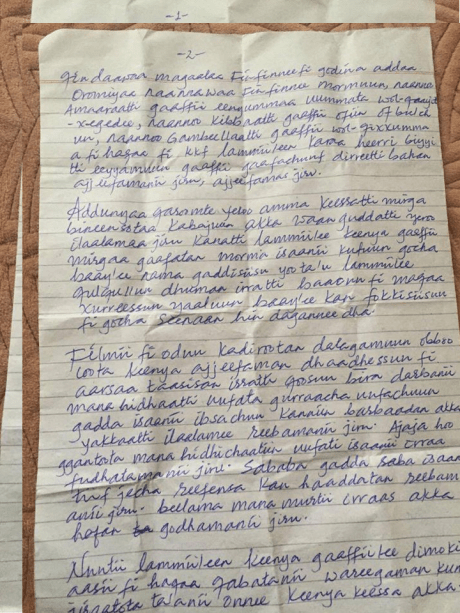 -1-
-2-
daawoo magaalaa Finfinneefi godina addaa
Oromiyaa naannawaa Finfinnee mormuun, naannoo
Amaaraatti gaaffii eenyummaa uummata wol-qaayit
-xegedee, naannoo Kibbaatti gaaffii ofiin of bulch
un, naannoo Gambeellaatti gaaffii wol-qixxumma
a fi haqaa fi kkf lammiileen karaa heerri biyyi
tti eeyyamuun gaaffii gaafachuuf dirretti bahan
ajjeefamanii jiru, ajjeefamas jiru.
Addunyaa qaroomte yeroo amma keessatti mirga
bineensotaa kabajuun akka waan guddatti yeroo
ilaalamaa jiru kanatti lammiilee keenya gaaffii
mirgaa gaafatan morma isaanii kutuun gocha
baay'ee nama gaddisiisu yo ta'u lammiilee
qulqulluu dhuman irratti baaonni fi maqaa
xurreessuun yaaluun baay'ee kan fokkisiisuu
fi gocha seenaan hin dagannee dha.
Filmii fi oduu kadirootan dalagamuun obboo
loota keenya ajjeefaman dhaadhessuu fi
aarsaa taasisan irratti goosun biraa darbanii
mana hidhaatti uufata gurraacha uufachuun
gadda isaanii ibsachuu kannin barbaadan akka
yakkaatti ilaalamee reebamanii jiru. Ajaja ho
ggantoota mana hidhichaatiin uufati isaanii irraa
fudhatamanii jiru. Sababa gadda saba isaani
tiif jecha reefensa kan haaddatan reebam
anii jiru. beelama mana murtii irraas akka
hafan godhamanii jiru.
Nuutii lammiileen keenya gaaffiilee dimoki
aasii fi haqaa qabatanii wareegaman kun
ta'anii onnee keenya keessa akka